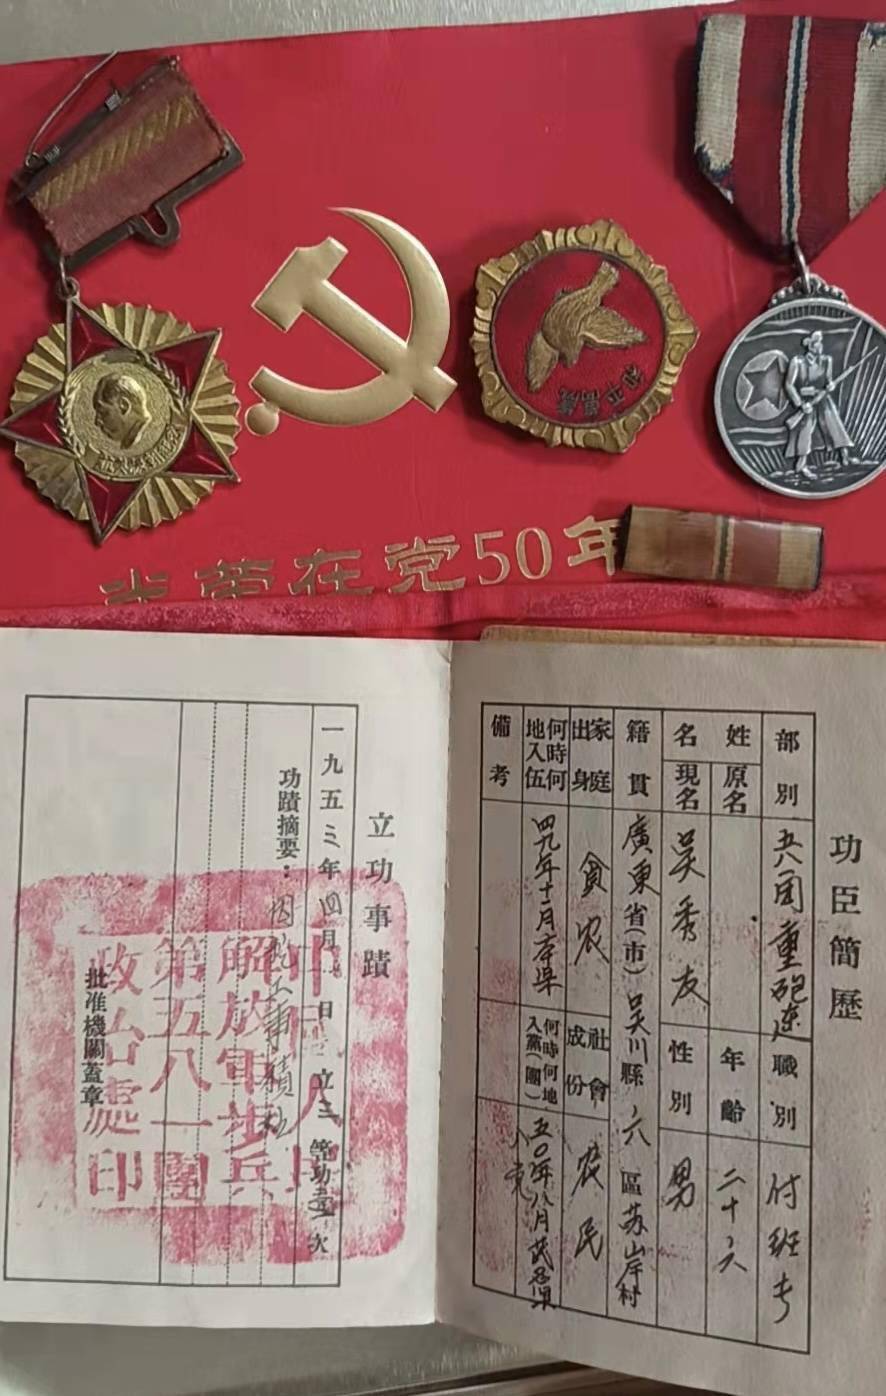 光荣在党50年
功臣簡歷
部別 兵團重砲連 職別 付班长
姓名 原名 年齡 二十六
現名 吴秀友 性別 男
籍貫 廣東省(市)吴川縣六區苏岸村
家庭出身 貧农 社會成份 农民
何時何地入伍 四九年十一月本県 何時何地入黨(團) 五〇年八月茂名県
備考
立功事蹟
一九五三年四月 日立三等功壹次
功蹟摘要：
批准機關蓋章
中國人民解放軍步兵第五八一團政治處印